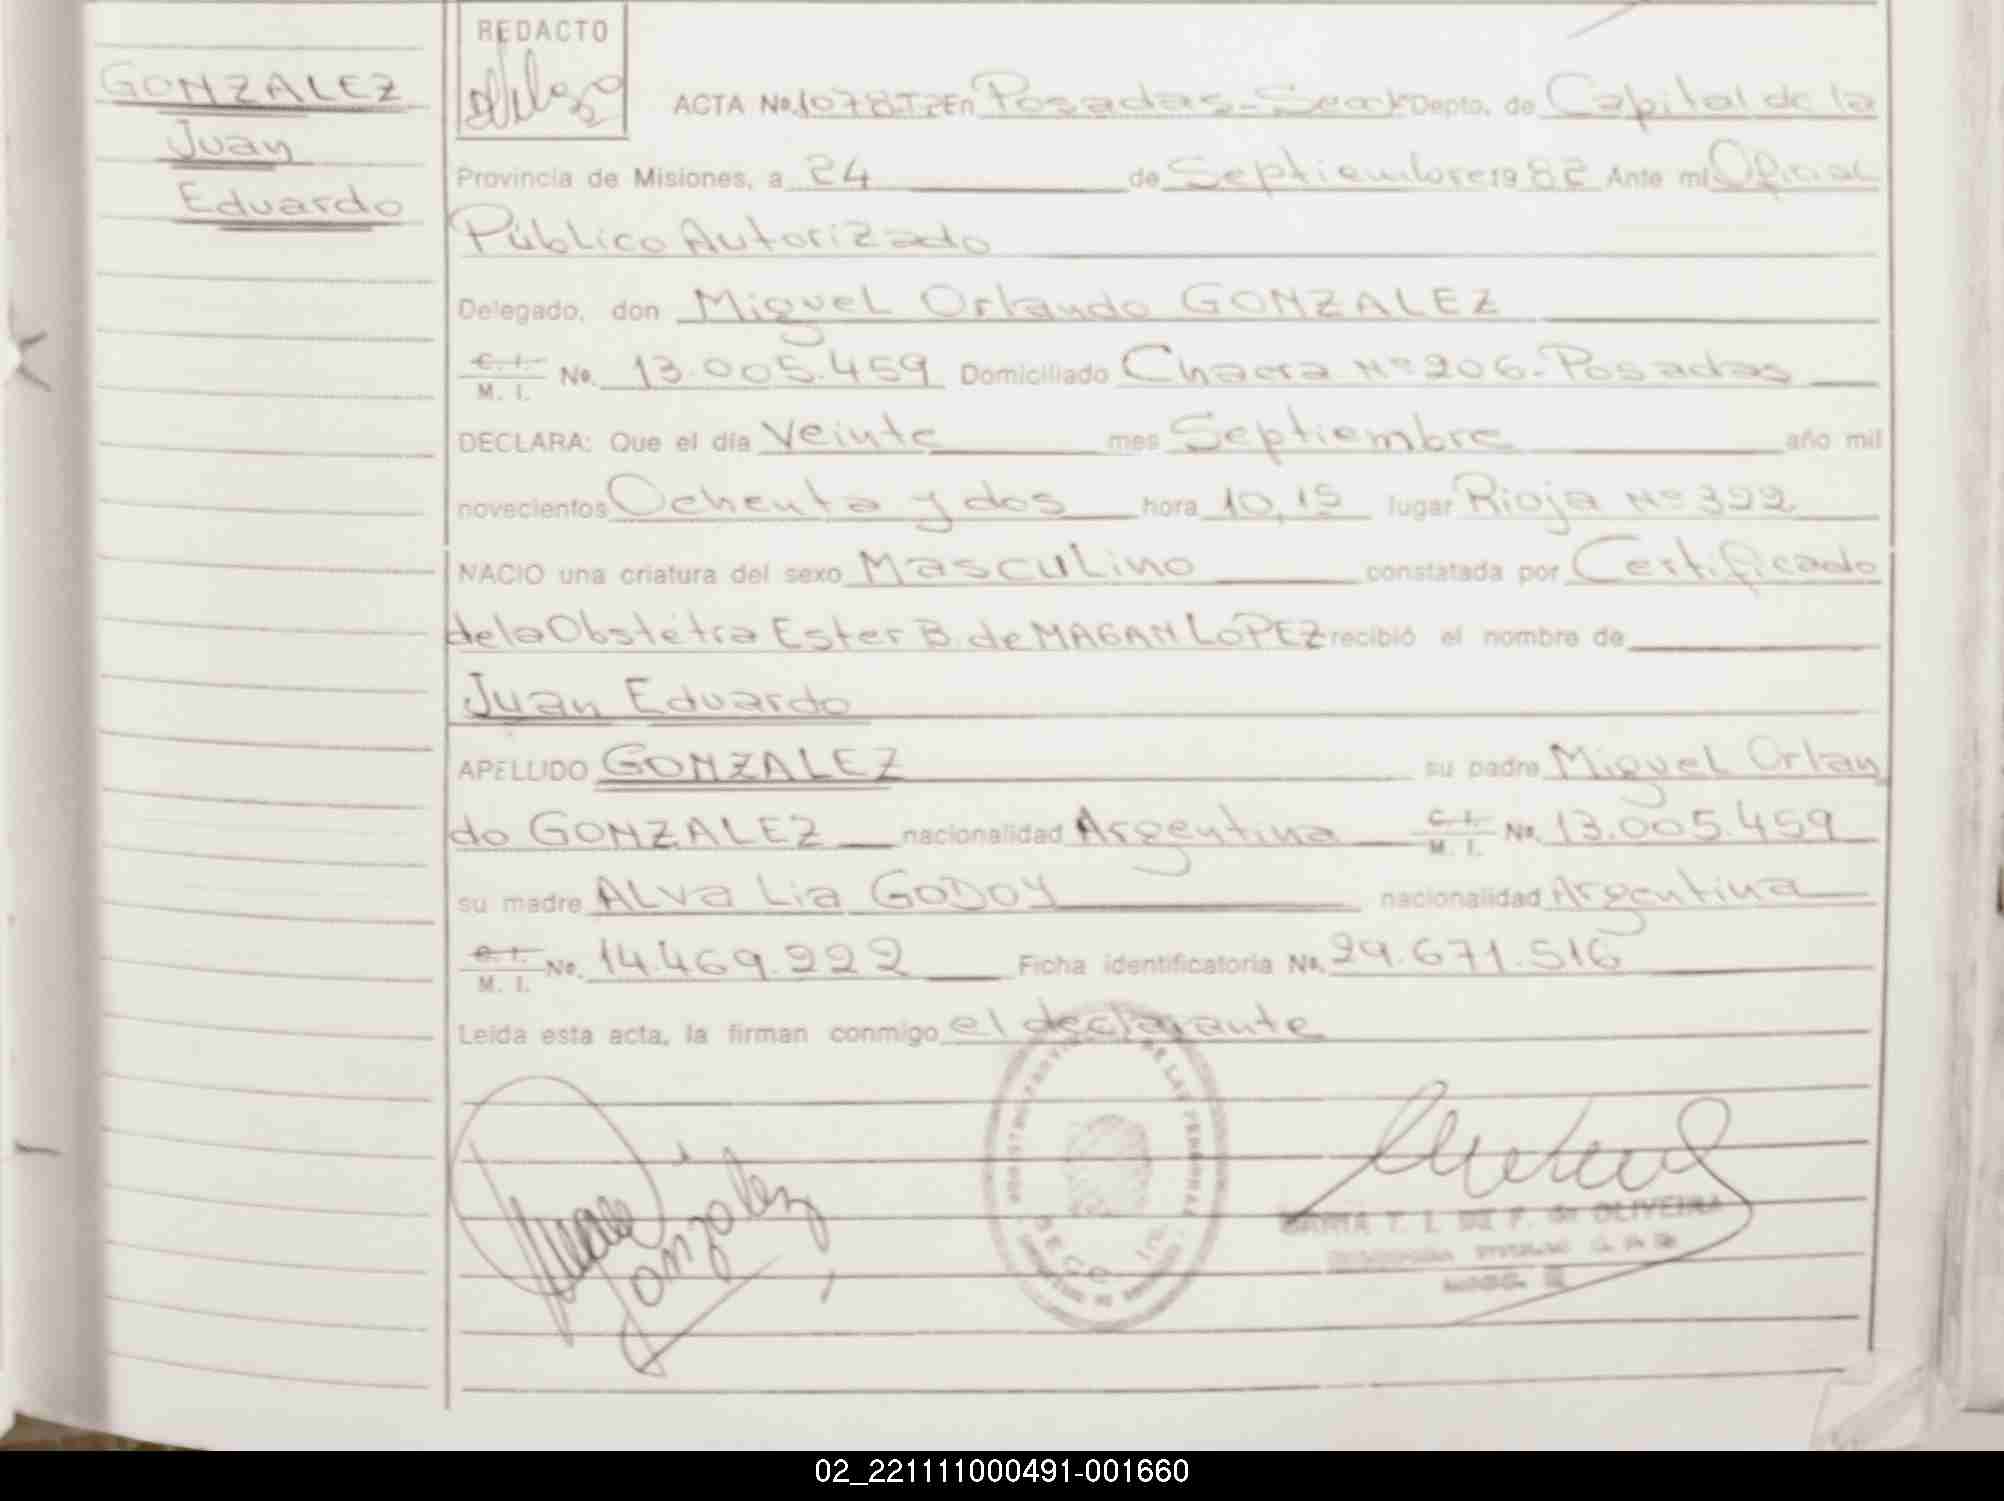 GONZALEZ
Juan
Eduardo
REDACTO
ACTA No. 1078.T2 En Posadas-Secc 1a Depto. de Capital de la
Provincia de Misiones, a 24 de Septiembre 1982 Ante mi Oficial
Público Autorizado
Delegado, don Miguel Orlando GONZALEZ
C. I. M. I. No. 13.005.459 Domiciliado Chacra Nº 206-Posadas
DECLARA: Que el día Veinte mes Septiembre año mil
novecientos Ochenta y dos hora 10,15 lugar Rioja Nº 322
NACIO una criatura del sexo Masculino constatada por Certificado
de la Obstétra Ester B. de MAGAN LOPEZ recibió el nombre de
Juan Eduardo
APELLIDO GONZALEZ su padre Miguel Orlan
do GONZALEZ nacionalidad Argentina C. I. M. I. No. 13.005.459
su madre ALva Lia GODOY nacionalidad Argentina
C. I. M. I. No. 14.469.222 Ficha identificatoria No. 29.671.516
Leida esta acta, la firman conmigo el declarante
González
DE LAS PERSONAS
SECC
de OLIVEIRA
02_221111000491-001660